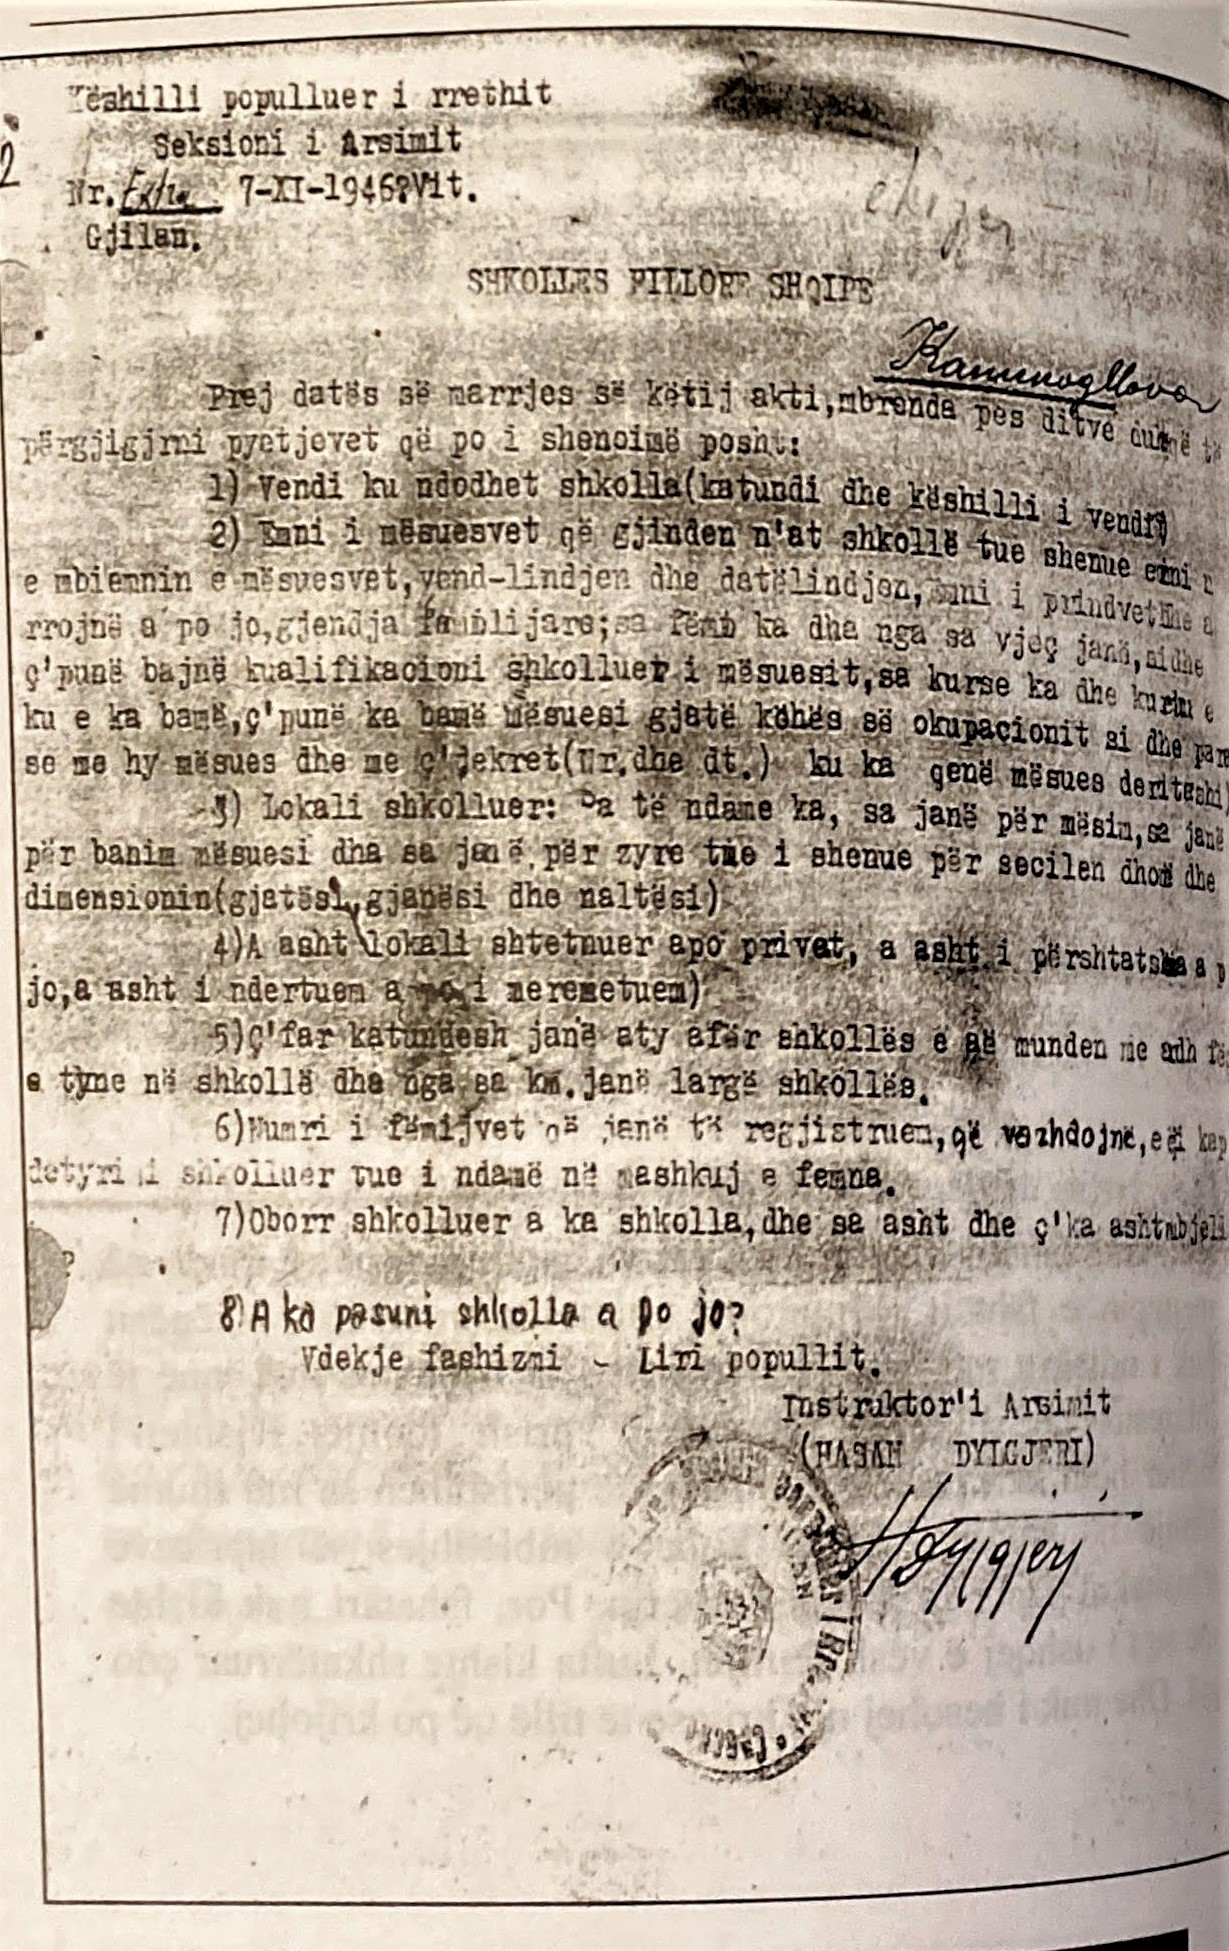 Këshilli populluer i rrethit
Seksioni i Arsimit
Nr. Extra 7-XI-1946 Vit.
Gjilan.
SHKOLLES FILLORE SHQIPE
Prej datës së marrjes së këtij akti,mbrenda pës ditve duhnë të
përgjigjmi pyetjevet që po i shenoimë posht:
1) Vendi ku ndodhet shkolla(katundi dhe këshilli i vendit)
2) Emni i mësuesvet që gjinden n'at shkollë tue shenue emni
e mbiemnin e mësuesvet,vend-lindjen dhe datëlindjen, Emni i prindvet me a
rrojnë a po jo,gjendja familijare;sa fëmi ka dha nga sa vjeç janë,
ç'punë bajnë kualifikacioni shkolluer i mësuesit,sa kurse ka dhe ku
ku e ka bamë,ç'punë ka bamë mësuesi gjatë kohës së okupacionit si dhe para
se me hy mësues dhe me ç'dekret(Nr.dhe dt.) ku ka qenë mësues deritashi
3) Lokali shkolluer: Sa të ndame ka, sa janë për mësim,sa janë
për banim mësuesi dha sa janë për zyre tue i shenue për secilen dhomë dhe
dimensionin(gjatësi,gjanësi dhe naltësi)
4)A asht lokali shtetnuer apo privat, a asht i përshtatshm a p
jo,a asht i ndertuem a po i meremetuem)
5)Ç'far katundesh janë aty afër shkollës e që munden me adh fë
e tyne në shkollë dha nga sa km.janë largë shkollës.
6)Numri i fëmijvet që janë të regjistruem,që vazhdojnë,e çi kap
detyrimi shkolluer tue i ndamë në mashkuj e femna.
7)Oborr shkolluer a ka shkolla,dhe sa asht dhe ç'ka asht mbjell
8)A ka pasuni shkolla a po jo?
Vdekje fashizmi - Liri popullit.
Instruktor'i Arsimit
(HASAN DYLGJERI)
HDylgjeri